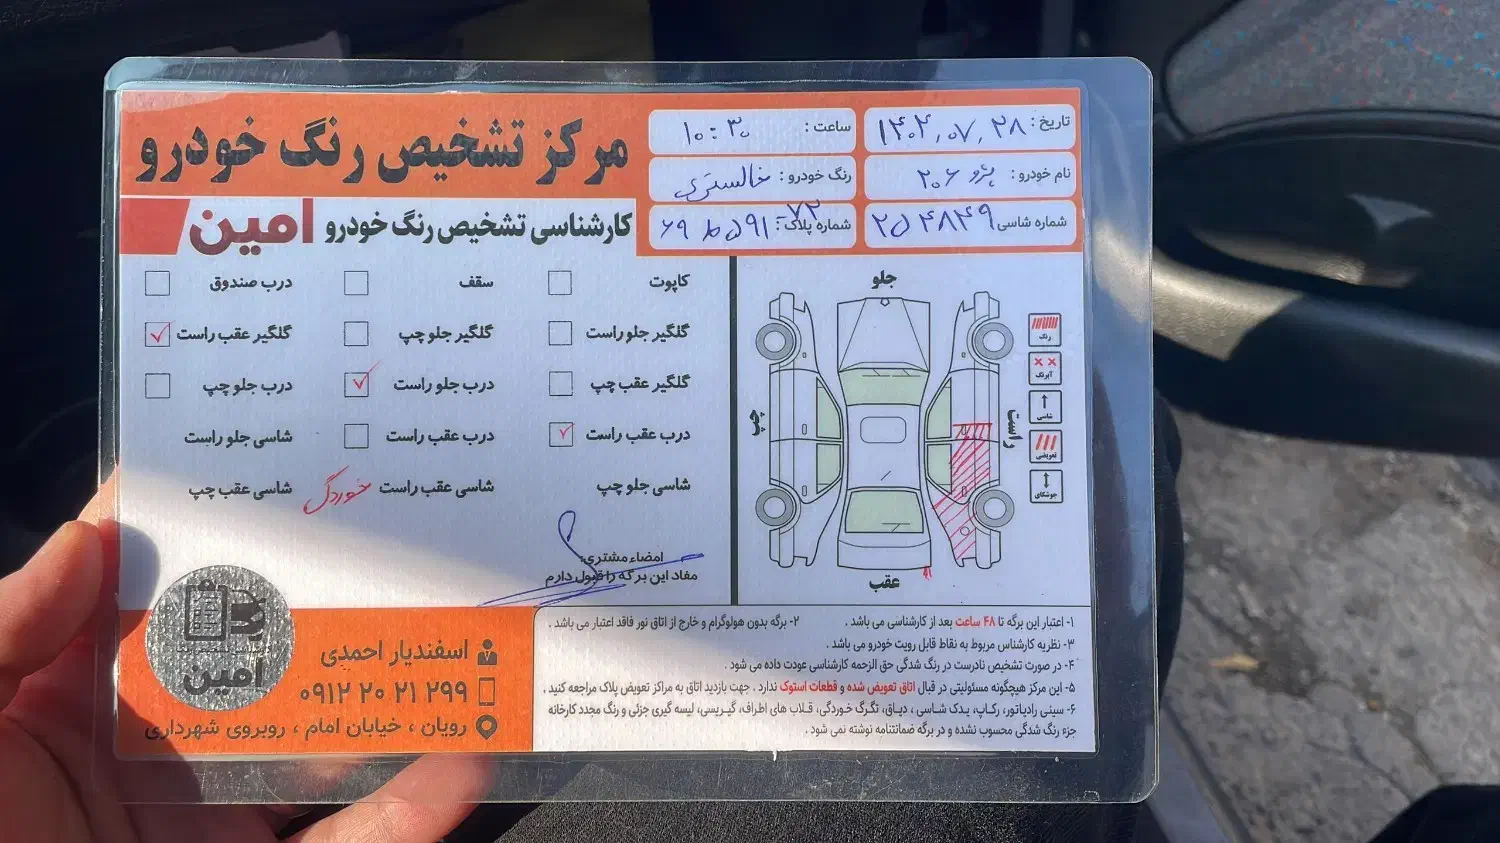 مرکز تشخیص رنگ خودرو
کارشناسی تشخیص رنگ خودرو امین
تاریخ: ۱۴۰۴,۰۷,۲۸
ساعت: ۱۰:۳۰
نام خودرو: پژو ۲۰۶
رنگ خودرو: خاکستری
شماره شاسی ۲۵۴۸۴۹
شماره پلاک: ۷۲ - ۵۹۱ ط ۶۹
کاپوت
سقف
درب صندوق
گلگیر جلو راست
گلگیر جلو چپ
گلگیر عقب راست ✓
گلگیر عقب چپ
درب جلو راست ✓
درب جلو چپ
درب عقب راست ✓
درب عقب راست
شاسی جلو راست
شاسی جلو چپ
شاسی عقب راست خوردگی
شاسی عقب چپ
امضاء مشتری:
مفاد این برگه را قبول دارم
جلو
چپ
راست
عقب
رنگ
آبرنگ
شاسی
تعویضی
جوشکاری
۱- اعتبار این برگه تا ۴۸ ساعت بعد از کارشناسی می باشد .
۲- برگه بدون هولوگرام و خارج از اتاق نور فاقد اعتبار می باشد .
۳- نظریه کارشناس مربوط به نقاط قابل رویت خودرو می باشد .
۴- در صورت تشخیص نادرست در رنگ شدگی حق الزحمه کارشناسی عودت داده می شود .
۵- این مرکز هیچگونه مسئولیتی در قبال اتاق تعویض شده و قطعات استوک ندارد . جهت بازدید اتاق به مراکز تعویض پلاک مراجعه کنید .
۶- سینی رادیاتور، رکاب، یدک شاسی ، دیاق، تگرگ خوردگی، قلاب های اطراف، گیریسی، لیسه گیری جزئی و رنگ مجدد کارخانه
جزء رنگ شدگی محسوب نشده و در برگه ضمانتنامه نوشته نمی شود .
امین
اسفندیار احمدی
۰۹۱۲ ۲۰ ۲۱ ۲۹۹
رویان ، خیابان امام ، روبروی شهرداری